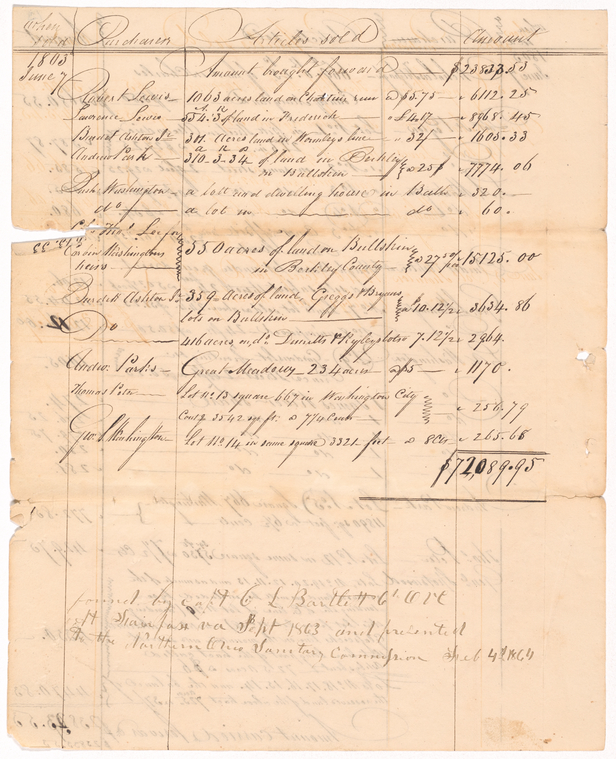 When Purchasers Articles sold Amount
1803
June 7 Amount brought forward $23833.53
Robert Lewis 1063 acres land on run @ $5.75 " 6112.25
Lawrence Lewis 554.3 of land in Frederick " £4.17 " 8968.45
Burdet Ashton Jr 301 Acres land on Wormleys line " 32/ " 1605.33
a r p
Andrew Park 310.3.34 of land in Berkley
in Bullskin @ 25$ " 7774.06
Bush. Washington a lott and dwelling house in Bath " 320.
do a lot in do " 60.
Thos.
Corbin Washingtons 550 acres of land on Bullskin
heirs in Berkley County @ 27 15125.00
Burdett Ashton Jr 359 Acres of land, Greggs & Bryans
lots in Bullskin @ 10.12½ " 3634.86
Do 416 acres in do & Ryleys lots @ 7.12½ " 2964.
Andw. Parks Great Meadow 234 acres @ $5 " 1170.
Thomas Peter Lot No. 15 square 667 in Washington City
Cont.g 3542 sqr. ft. @ 7¼ Cents " 256.79
Geo. S Washington Lot No. 14 in same square 3321 feet @ 8 Cts " 265.68
$72,089.95
found by capt C L Bartlett
at va Sept 1863 and presented
to the Northern Ohio Sanitary Commission Feb 4th 1864